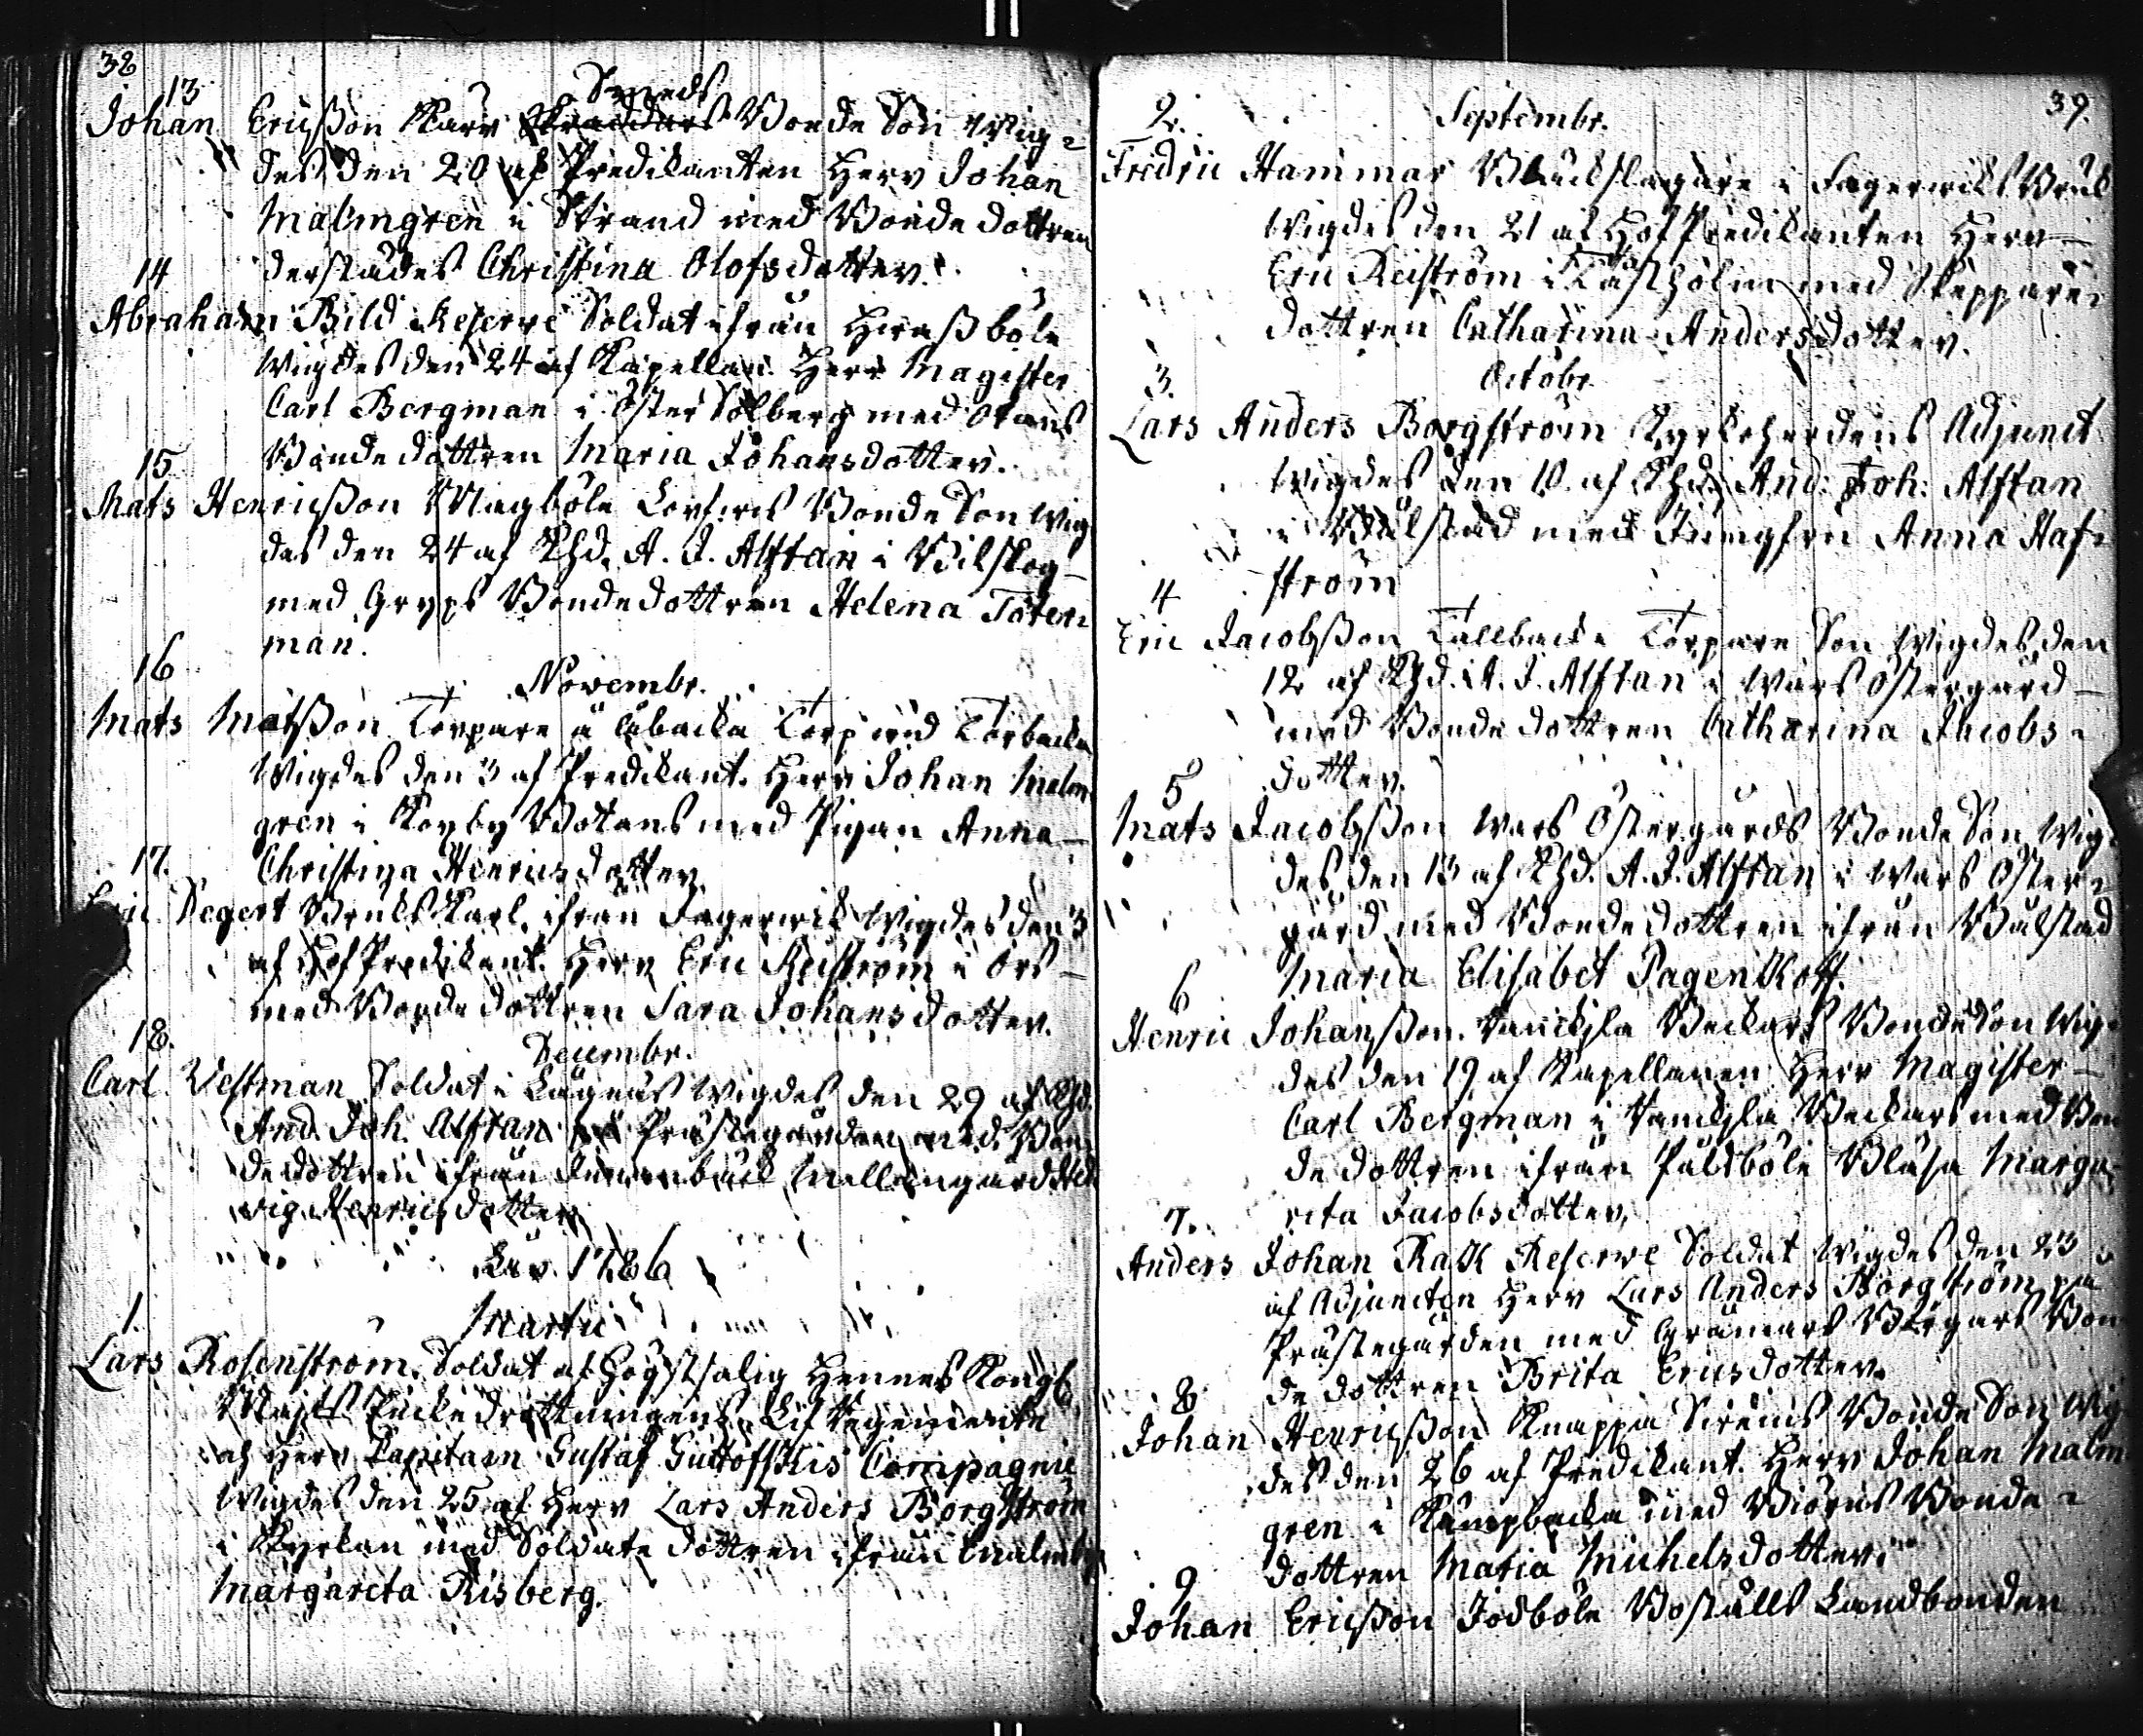 38
13
Smeds
Johan Ericsson Karv Skraddars Bonde Son Wig=
des den 20 af Predikanten Herr Johan
Malmgren i Strand med Bonde dottren
derstädes Christina Olofsdotter.
14
Abraham Bild Reserve Soldat ifrån Hirssböle
Wigdes den 24 af Kapellan Herr Magister
Carl Bergman i Öster Solberg med
Bonde dottren Maria Johansdotter.
15
Mats Henricsson Bonde Son Wig
des den 24 af Khd. A. J. Alftan i Bilskog
med Gryps Bonde dottren Helena Toter=
man.
16
Novembr.
Mats Matsson Torpare å Torp vid Torbacka
Wigdes den 3 af Predikant. Herr Johan Malm
gren i med Pigan Anna
Christina Henricsdotter.
17.
Eric Degert Bruks Karl ifrån Fagerwik Wigdes den 3
af Hof Predikant. Herr Eric Reiström i Ors
med Bonde dottren Sara Johansdotter.
18.
Decembr.
Carl Vestman Soldat i Wigdes den 29 af Khd.
And. Joh. Alftan på Prästegården med Bon
de dottren ifrån Mellangård Hed
vig Henricsdotter
1786
Martii
1.
Lars Rosenström Soldat af Högstsalig Hennes Kongl.
Majts Enkedrottningens Lif Regemente
af Herr Capitain Gustaf Gutofskis Compagnie
Wigdes den 25 af Herr Lars Anders Borgström
i Kyrkan med Soldate dottren ifrån Malmby
Margareta Risberg.
39.
2.
Septembr.
Fredric Hammar i Fagerwiks Bruk
Wigdes den 21 af Hof Predikanten Herr
Eric Reiström i med Skeppare
dottren Catharina Andersdotter.
3.
Octobr.
Lars Anders Borgström Kyrkoherdens Adjunct
Wigdes den 10 af Khd. And: Joh: Alftan
i Bålstad med Jungfru Anna Haf=
ström
4
Eric Jacobsson Tallbacka Torpare Son Wigdes den
12 af Khd. A. J. Alftan i Wars Östergård
med Bonde dottren Catharina Jacobs=
dotter.
5
Mats Jacobsson Wars Östergårds Bonde Son Wig=
des den 13 af Khd. A. J. Alftan i Wars Öster=
gård med Bonde dottren ifrån Bålstad
Maria Elisabet Pagenkoff.
6
Henric Johansson Vanckila Beckars Bonde Son Wig=
des den 19 af Kapellanen Herr Magister
Carl Bergman i Vanckila Beckars med Bon
de dottren ifrån Påldböle Blåsa Marga
rita Jacobsdotter.
7.
Anders Johan Rask Reserve Soldat Wigdes den 23
af Adjuncten Herr Lars Anders Borgström på
Prästegården med Bon
de dottren Brita Ericsdotter.
8
Johan Henricsson Knappia Sirens Bonde Son Wig
des den 26 af Predikant. Herr Johan Malm
gren i med Biörns Bonde=
dottren Maria Michelsdotter.
9
Johan Ericsson Jodböle Boställs Landbonden